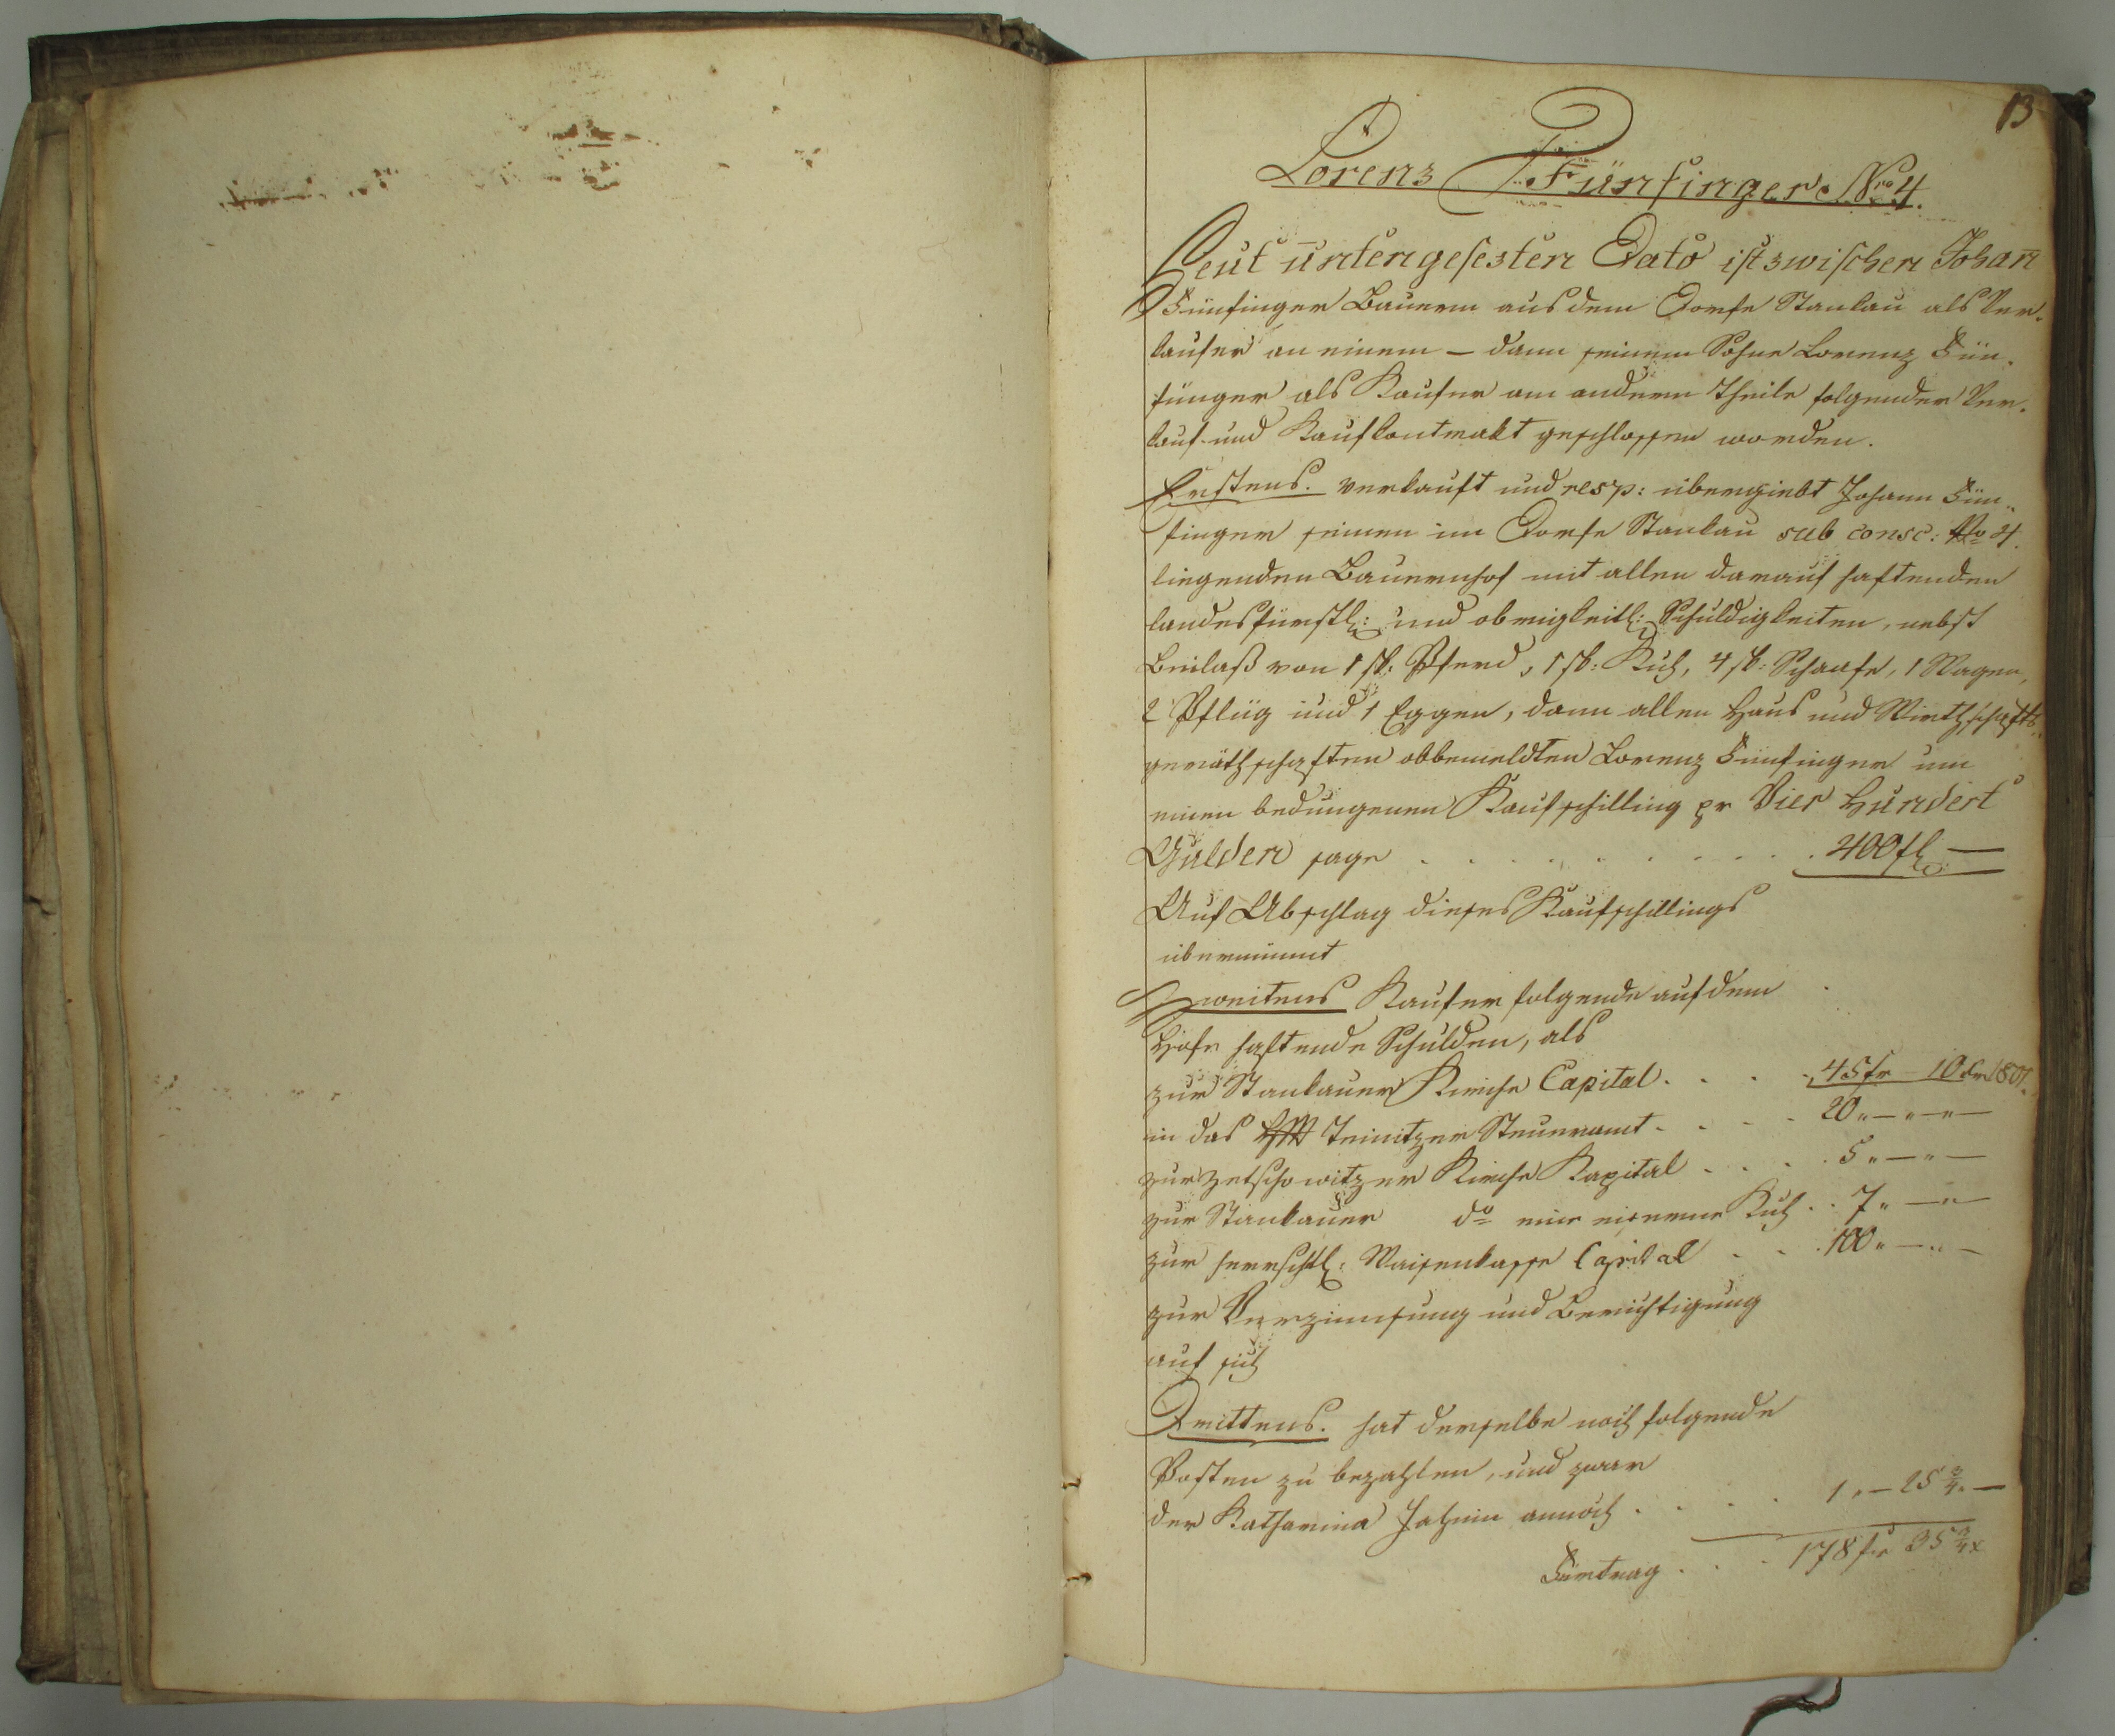 13
Lorenz Fünfinger Nro 4.
Heut untengesezten Dato ist zwischen Johan̄
Fünfinger Bauern aus dem Dorfe Stankau als Ver-
kaufer an einem – dann seinem Sohne Lorenz Fün-
fünger als Kaufer am andern Theile folgender Ver-
kauf- und Kaufkontrakt geschlossen worden.
Erstens. verkauft und resp: übergiebt Johann Fün-
finger seinen im Dorfe Stankau sub consc: No 4.
liegenden Bauernhof mit allen darauf haftenden
landesfürstl: und obrigkeitl: Schuldigkeiten, nebst
Beilaß von 1 st: Pferd, 1 st: Kuh, 4 st: Schaafe, 1 Wagen,
2 Pflüg und 1 Eggen, dann allen Haus und Wirthschafts-
geräthschaften obbemeldten Lorenz Fünfinger um
einen bedungenen Kaufschilling pr Vier Hundert
Gulden sage . . . . . . . . . 400 fl —
Auf Abschlag dieses Kaufschillings
übernimmt
Zweitens Kaufer folgende auf dem
Hofe haftende Schulden, als
zur Stankauer Kirche Capital . . . . 45 fr 10
in das Teinitzer Steueramt . . . . 20 „ — „ — „ —
zur Zetschowitzer Kirche Kapital . . . . 5 „ — „ —
zur Stankauer do eine eiserne Kuh . . 7 „ — „ —
zur herrschtl: Waisenkasse Capital . . . 100 „ — „ —
zur Verzinnsung und Berichtigung
auf sich
Drittens. hat derselbe noch folgende
Posten zu bezahlen, und zwar
der Katharina annoch . . . . 1 „ — 25 3/4 „ —
Fürtrag . . . 178 fr 35 3/4 x